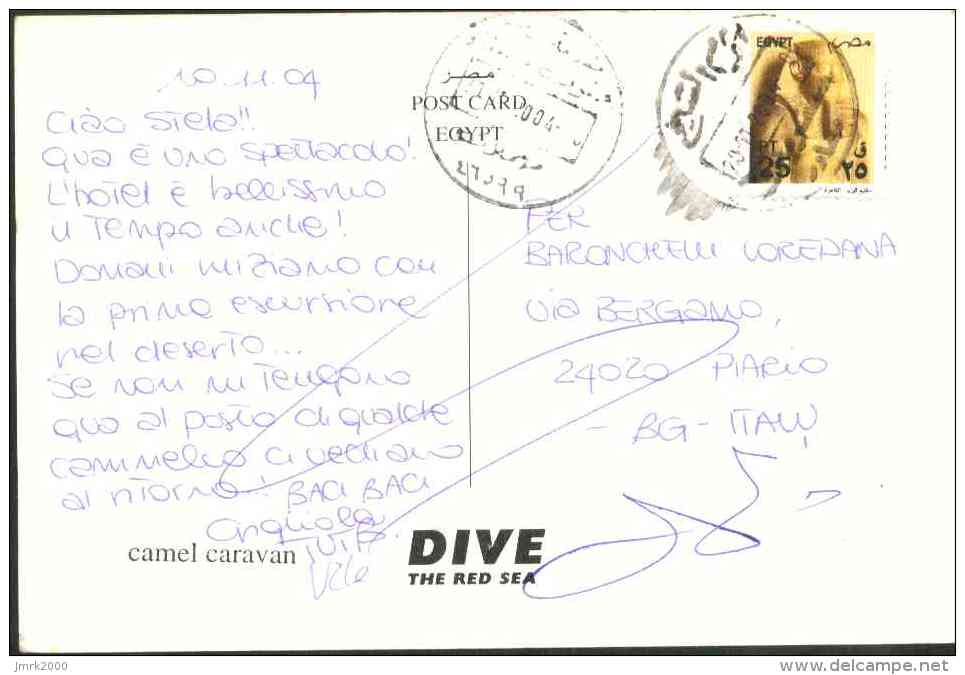 10.11.04
Ciao Stela!!
Qua è uno spettacolo!
L'hotel è bellissimo
il tempo anche!
Domani iniziamo con
la prima escursione
nel deserto...
Se non mi tengono
qua al posto di qualche
cammello ci vediamo
al ritorno! BACI BACI
camel caravan
مصر
POST CARD
EGYPT
DIVE
THE RED SEA
EGYPT مصر
PT 25 ٢٥ ق
PER
BARONCHELLI LOREDANA
Via BERGAMO,
24020 PIARIO
- BG - ITALY
jmrk2000
www.delcampe.net